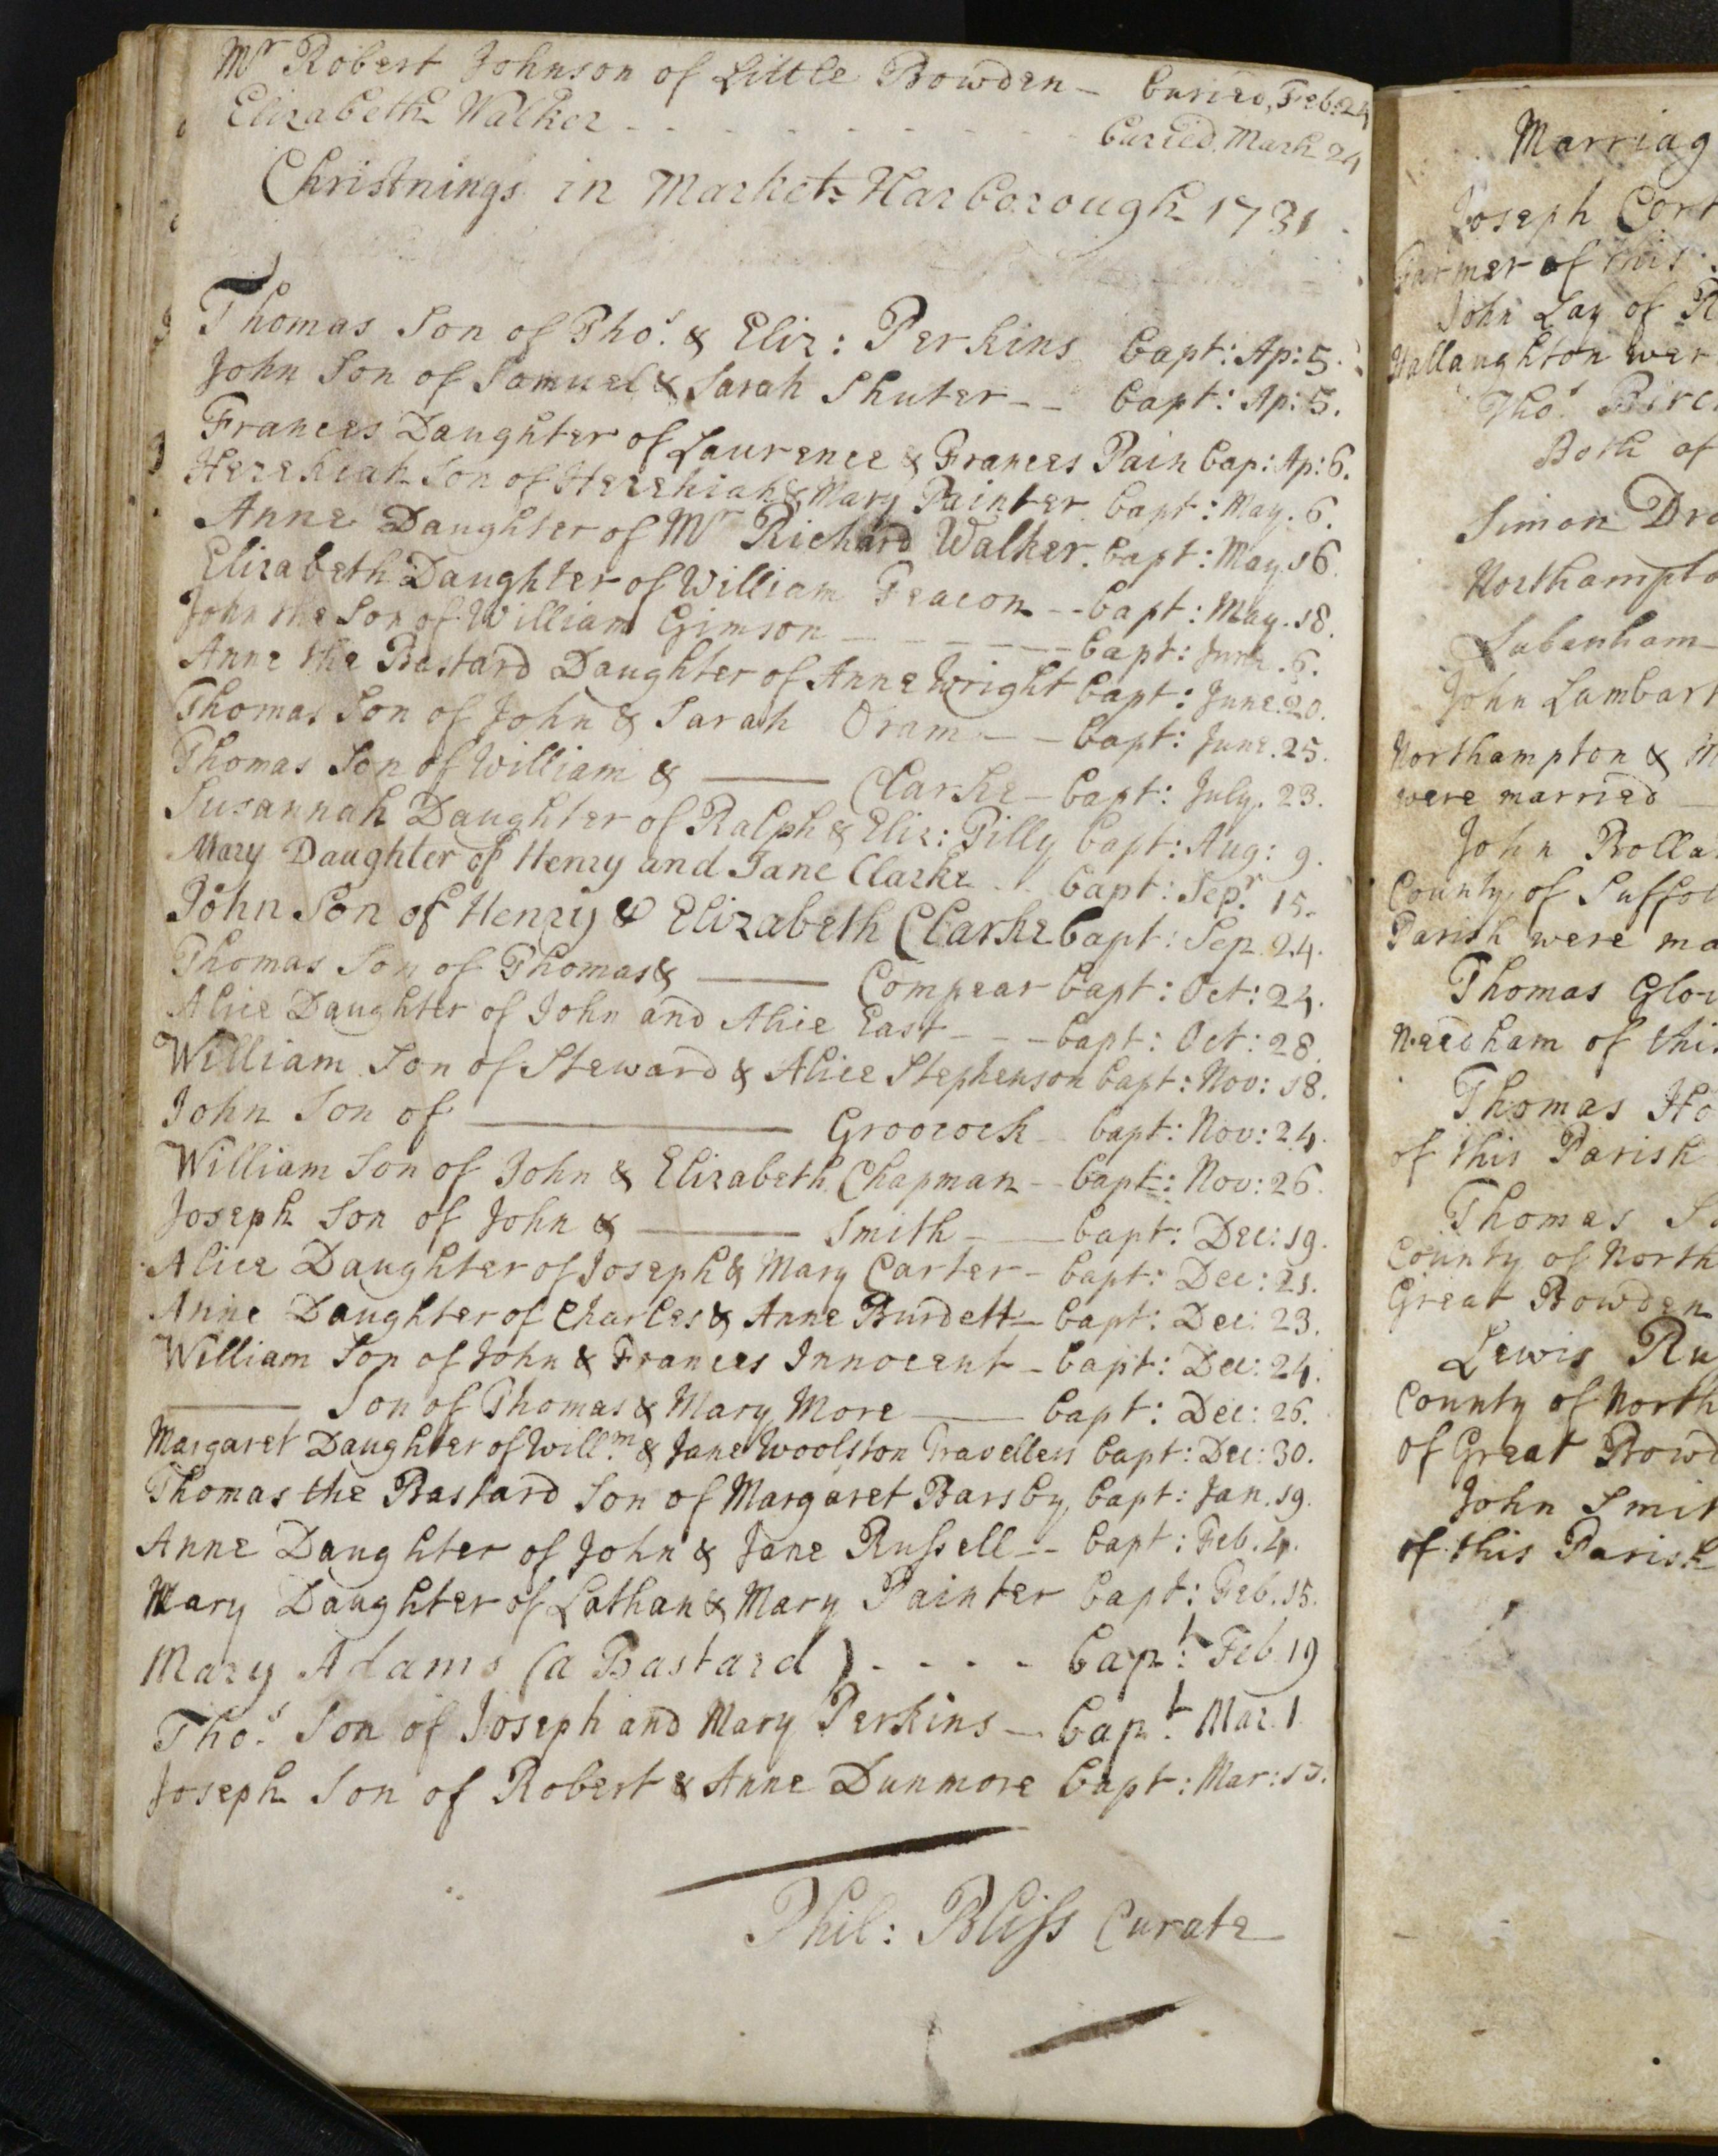 Mr Robert Johnson of Little Bowden - buried, Feb: 24
Elizabeth Walker - - - - - - - - - buried March 24
Christnings in Market-Harborough 1731
Thomas Son of Tho.s & Eliz: Perkins bapt: Ap: 5.
John Son of Samuel & Sarah Shuter - - bapt: Ap: 5.
Frances Daughter of Laurence & Frances Pain bap: Ap: 6.
Hezekiah Son of Hezekiah & Mary Painter bapt: May. 6.
Anne Daughter of Mr Richard Walker. bapt: May. 16.
Elizabeth Daughter of William Feacon - - bapt: May. 18.
John the Son of William Gimson - - - - - bapt: June. 6.
Anne the Bastard Daughter of Anne Wright bapt: June. 20.
Thomas Son of John & Sarah Oram - - bapt: June. 25.
Thomas Son of William & —— Clarke - bapt: July. 23.
Susannah Daughter of Ralph & Eliz: Pilly bapt: Aug: 9.
Mary Daughter of Henry and Jane Clarke . . bapt: Sepr. 15.
John Son of Henry & Elizabeth Clarke bapt: Sep. 24.
Thomas Son of Thomas & —— Compear bapt: Oct: 24.
Alice Daughter of John and Alice East - - - bapt: Oct: 28.
William Son of Steward & Alice Stephenson bapt: Nov: 18.
John Son of —— Groocock - bapt: Nov: 24.
William Son of John & Elizabeth Chapman - - bapt: Nov: 26.
Joseph Son of John & —— Smith - — bapt: Dec: 19.
Alice Daughter of Joseph & Mary Carter - bapt: Dec: 21.
Anne Daughter of Charles & Anne Burdett - bapt: Dec: 23.
William Son of John & Frances Innocent - bapt: Dec: 24.
—— Son of Thomas & Mary More —— bapt: Dec: 26.
Margaret Daughter of Will.m & Jane Woolston Travellers bapt: Dec: 30.
Thomas the Bastard Son of Margaret Barsby bapt: Jan. 19.
Anne Daughter of John & Jane Rufsell - - bapt: Feb. 4.
Mary Daughter of Lathan & Mary Painter bapt: Feb. 15.
Mary Adams (a Bastard) - - - - bapt: Feb 19
Tho.s Son of Joseph and Mary Perkins - bapt: Mar. 1
Joseph Son of Robert & Anne Dunmore bapt: Mar:
Phil: Blifs Curate
Marriag
Joseph Cort
farmer of this
John Lay of R
Hallaughton wer
Tho.s
Both of
Simon Dra
Northampto
Lubenham -
John Lambart
Northampton & M
were married
John Bolla
County of Suffol
Parish were ma
Thomas Glov
Needham of this
Thomas Ho
of this Parish
Thomas
County of North
Great Bowden
Lewis Ru
County of North
of Great Bowd
John Smit
of this Parish